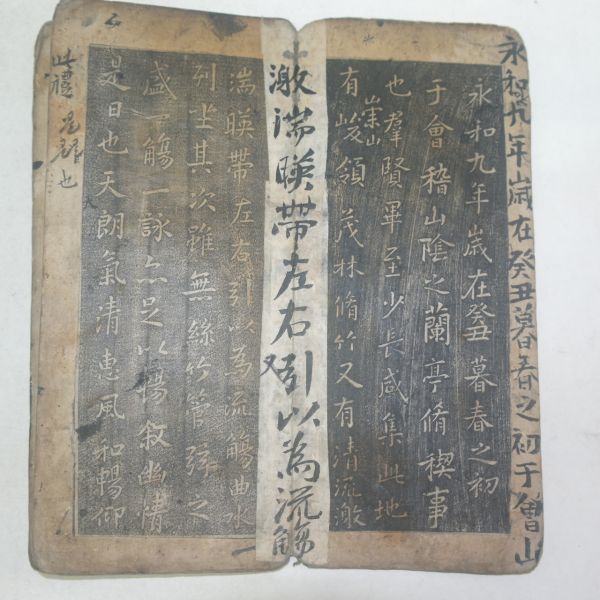 永和九年歲在癸丑暮春之初于會山
永和九年歲在癸丑暮春之初
于會稽山陰之蘭亭脩稧事
也群賢畢至少長咸集此地
有崇山峻領茂林脩竹又有清流激
激湍暎帶左右引以為流觴
又
湍暎帶左右引以為流觴曲水
列坐其次雖無絲竹管弦之
盛一觴一詠亦足以暢敘幽情
是日也天朗氣清惠風和暢仰
天
此禮
也